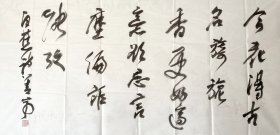 今花得古
名旖旎
香更好適
意欲忘言
塵緣詎
能